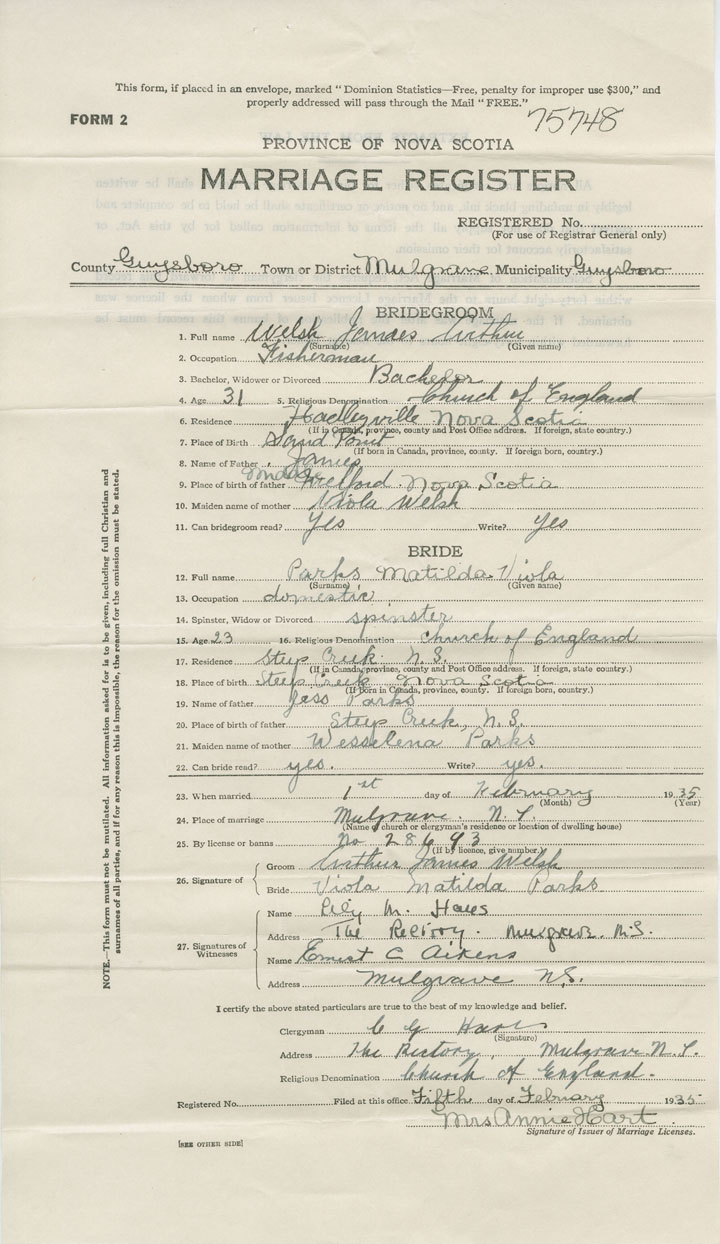 This form, if placed in an envelope, marked "Dominion Statistics—Free, penalty for improper use $300," and
properly addressed will pass through the Mail "FREE."
FORM 2
75748
PROVINCE OF NOVA SCOTIA
MARRIAGE REGISTER
REGISTERED No.
(For use of Registrar General only)
County Guysboro Town or District Mulgrave Municipality Guysboro
BRIDEGROOM
1. Full name Welsh James Arthur
(Surname) (Given name)
2. Occupation Fisherman
3. Bachelor, Widower or Divorced Bachelor
4. Age 31 5. Religious Denomination Church of England
6. Residence Hadleyville Nova Scotia
(If in Canada, province, county and Post Office address. If foreign, state country.)
7. Place of Birth Sand Point
(If born in Canada, province, county. If foreign born, country.)
8. Name of Father James
9. Place of birth of father Melford Nova Scotia
10. Maiden name of mother Viola Welsh
11. Can bridegroom read? Yes Write? Yes
BRIDE
12. Full name Parks Matilda Viola
(Surname) (Given name)
13. Occupation domestic
14. Spinster, Widow or Divorced spinster
15. Age 23 16. Religious Denomination Church of England
17. Residence Steep Creek N.S.
(If in Canada, province, county and Post Office address. If foreign, state country.)
18. Place of birth Steep Creek Nova Scotia
(If born in Canada, province, county. If foreign born, country.)
19. Name of father Jess Parks
20. Place of birth of father Steep Creek, N.S.
21. Maiden name of mother Wesselena Parks
22. Can bride read? yes. Write? yes.
23. When married 1st day of February 1935
(Month) (Year)
24. Place of marriage Mulgrave. N.S.
(Name of church or clergyman's residence or location of dwelling house)
25. By license or banns No 28693
(If by licence, give number)
26. Signature of
Groom Arthur James Welsh
Bride Viola Matilda Parks
27. Signatures of Witnesses
Name Lily M. Haes
Address The Rectory. Mulgrave. N.S.
Name Ernest C Aikens
Address Mulgrave N.S.
I certify the above stated particulars are true to the best of my knowledge and belief.
Clergyman C G Haes
(Signature)
Address The Rectory, Mulgrave N.S.
Religious Denomination Church of England.
Registered No. Filed at this office Fifth day of February 1935
Mrs Annie Hart
Signature of Issuer of Marriage Licenses.
[SEE OTHER SIDE]
NOTE.—This form must not be mutilated. All information asked for is to be given, including full Christian and
surnames of all parties, and if for any reason this is impossible, the reason for the omission must be stated.